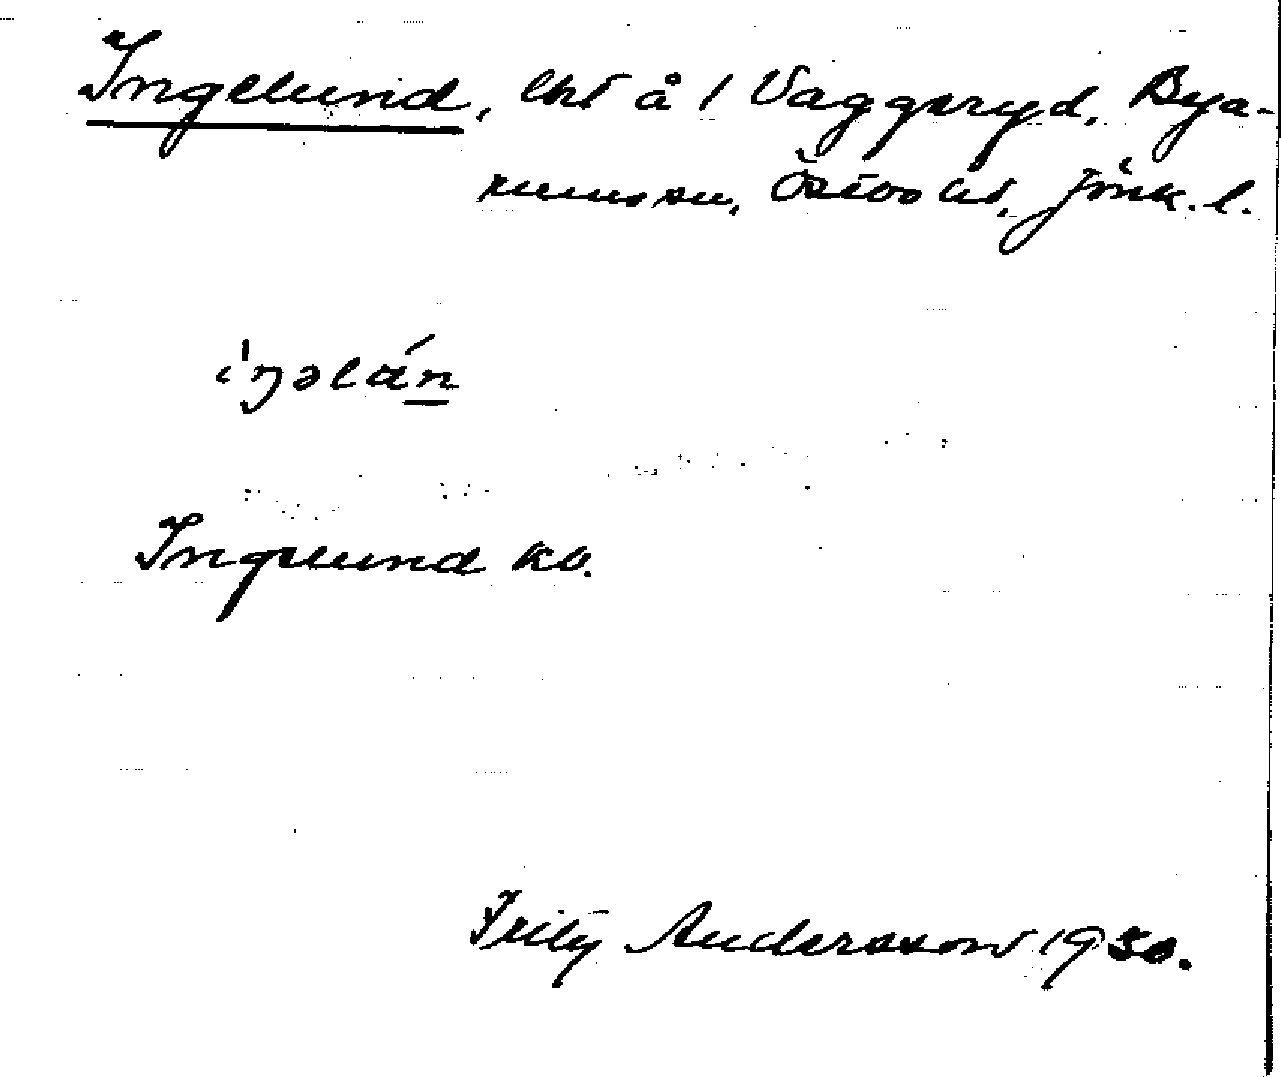 Ingelund, lht å 1 Vaggeryd, Bya-
rums sn, Östbo hd, Jönk. l.
íŋəlán
Ingelund kb.
Fritz Andersson 1930.